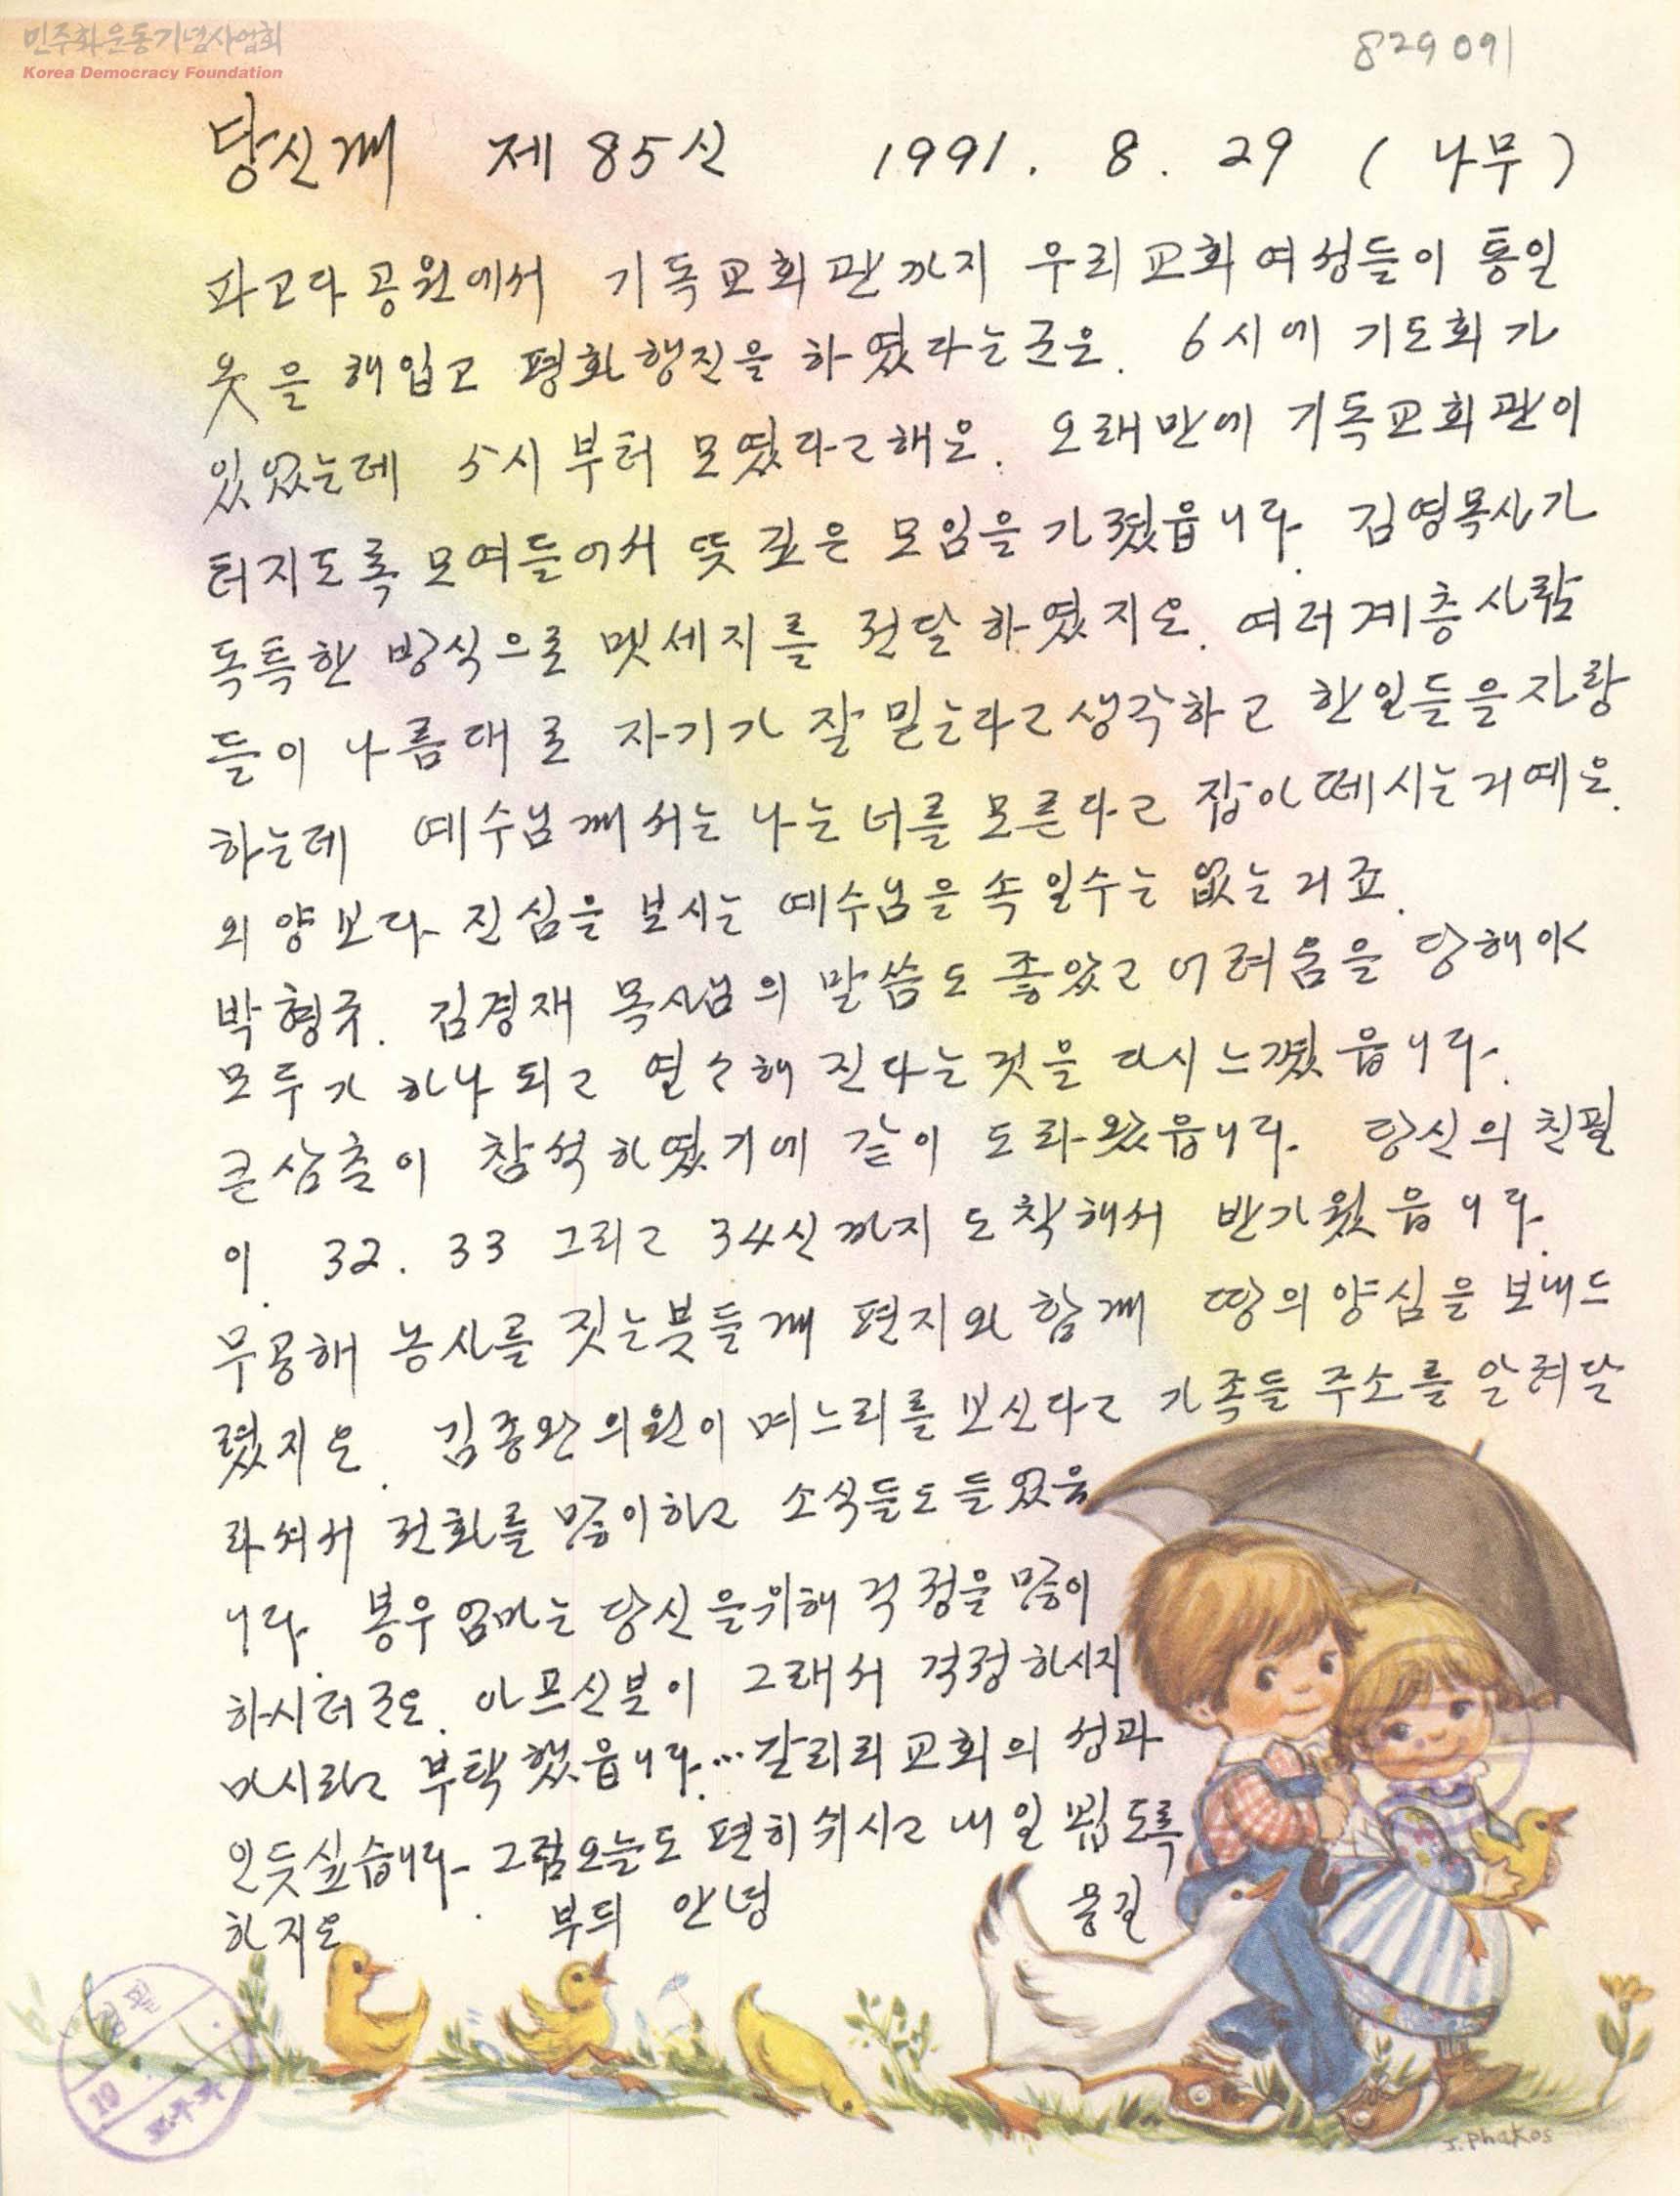 민주화운동기념사업회
Korea Democracy Foundation
829091
당신께 제85신 1991. 8. 29 (나무)
파고다공원에서 기독교회관까지 우리교회여성들이 통일
옷을 해입고 평화행진을 하였다는군요. 6시에 기도회가
있었는데 5시부터 모였다고해요. 오래만에 기독교회관이
터지도록 모여들어서 뜻깊은 모임을 가졌읍니다. 김영목사가
독특한 방식으로 멧세지를 전달하였지요. 여러계층사람
들이 나름대로 자기가 잘 믿는다고생각하고 한일들을자랑
하는데 예수님께서는 나는 너를 모른다고 잡아떼시는거예요.
외양보다 진심을 보시는 예수님을 속일수는 없는거죠.
박형규. 김경재 목사님의 말씀도 좋았고 어려움을 당해야
모두가 하나되고 열심해진다는것을 다시느꼈읍니다.
큰삼촌이 참석하였기에 같이 도라왔읍니다. 당신의친필
이 32. 33 그리고 34신까지 도착해서 반가웠읍니다.
무공해 농사를 짓는분들께 편지와 함께 땅의양심을 보내드
렸지요. 김종완의원이 며느리를 보신다고 가족들 주소를 알려달
라셔서 전화를 많이하고 소식들도들었읍
니다. 봉우엄마는 당신을위해 걱정을 많이
하시더군요. 아프신분이 그래서 걱정하시지
마시라고 부탁했읍니다.…갈리리교회의 성과
인듯싶습니다. 그럼오늘도 편히쉬시고 내일 뵙도록
하지요. 부디 안녕 용길
J. Phakos